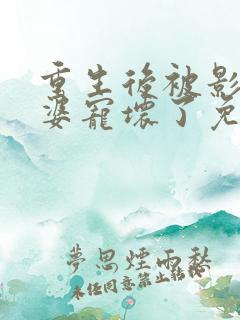 重生後被影
婆寵壞了免
夢思煙雨愁
未经同意禁止转载